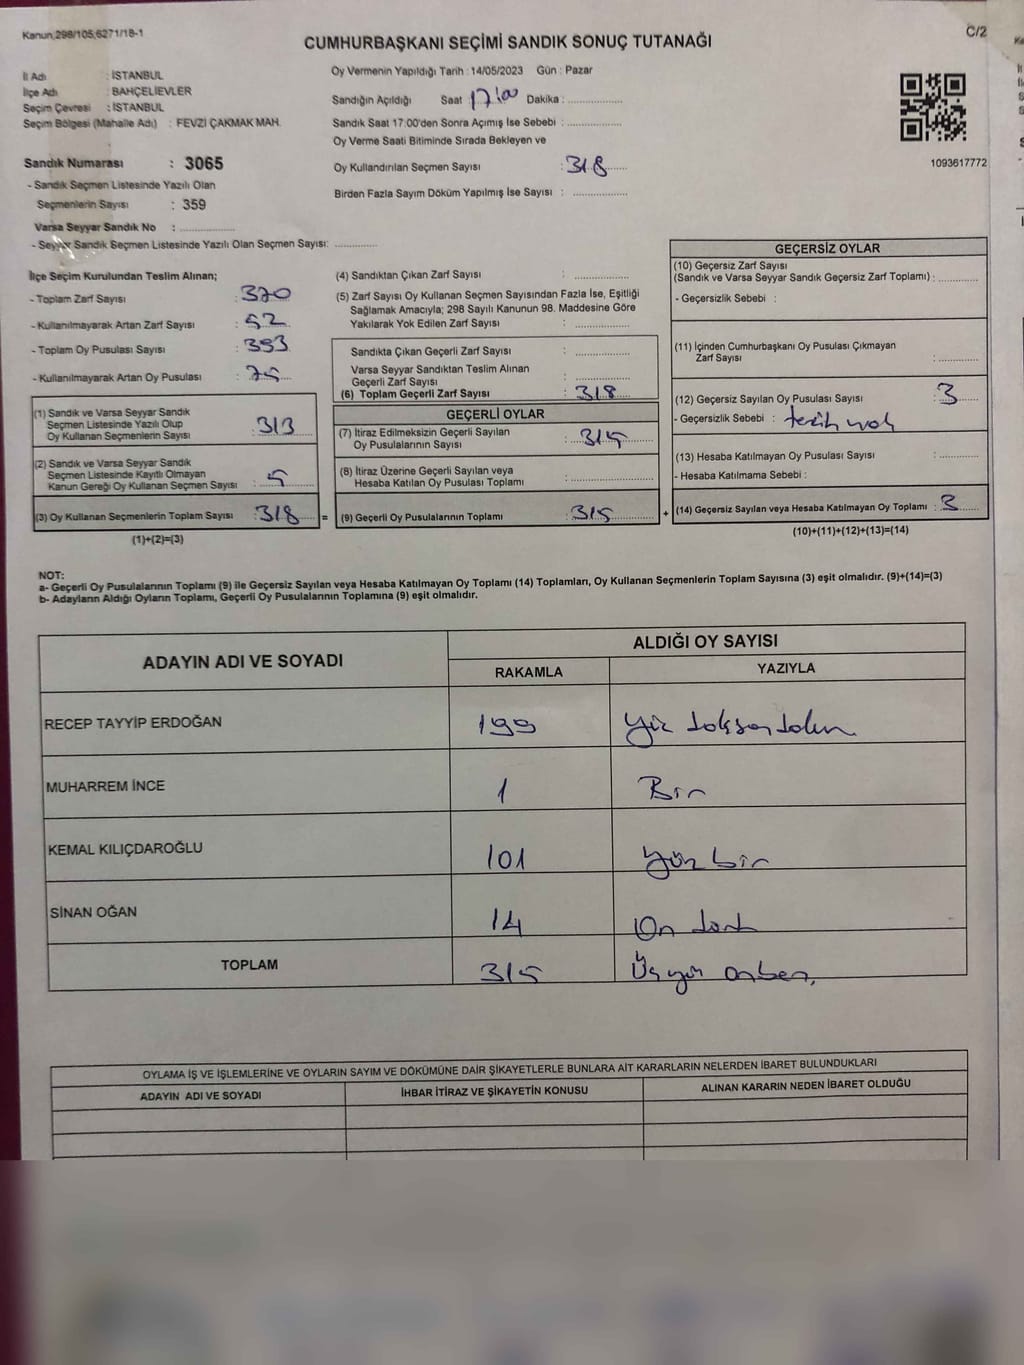 Kanun,298/105,6271/18-1
C/2
CUMHURBAŞKANI SEÇİMİ SANDIK SONUÇ TUTANAĞI
İl Adı : İSTANBUL
İlçe Adı : BAHÇELİEVLER
Seçim Çevresi : İSTANBUL
Seçim Bölgesi (Mahalle Adı) : FEVZİ ÇAKMAK MAH.
Sandık Numarası : 3065
- Sandık Seçmen Listesinde Yazılı Olan
Seçmenlerin Sayısı : 359
Varsa Seyyar Sandık No :
- Seyyar Sandık Seçmen Listesinde Yazılı Olan Seçmen Sayısı:
Oy Vermenin Yapıldığı Tarih : 14/05/2023 Gün : Pazar
Sandığın Açıldığı Saat 17:00 Dakika :
Sandık Saat 17:00'den Sonra Açımış İse Sebebi :
Oy Verme Saati Bitiminde Sırada Bekleyen ve
Oy Kullandırılan Seçmen Sayısı : 318
Birden Fazla Sayım Döküm Yapılmış İse Sayısı :
1093617772
İlçe Seçim Kurulundan Teslim Alınan;
- Toplam Zarf Sayısı : 370
- Kullanılmayarak Artan Zarf Sayısı : 52
- Toplam Oy Pusulası Sayısı : 393
- Kullanılmayarak Artan Oy Pusulası : 75
(1) Sandık ve Varsa Seyyar Sandık
Seçmen Listesinde Yazılı Olup
Oy Kullanan Seçmenlerin Sayısı : 313
(2) Sandık ve Varsa Seyyar Sandık
Seçmen Listesinde Kayıtlı Olmayan
Kanun Gereği Oy Kullanan Seçmen Sayısı : 5
(3) Oy Kullanan Seçmenlerin Toplam Sayısı : 318 =
(1)+(2)=(3)
(4) Sandıktan Çıkan Zarf Sayısı :
(5) Zarf Sayısı Oy Kullanan Seçmen Sayısından Fazla İse, Eşitliği
Sağlamak Amacıyla; 298 Sayılı Kanunun 98. Maddesine Göre
Yakılarak Yok Edilen Zarf Sayısı :
Sandıkta Çıkan Geçerli Zarf Sayısı :
Varsa Seyyar Sandıktan Teslim Alınan
Geçerli Zarf Sayısı :
(6) Toplam Geçerli Zarf Sayısı : 318
GEÇERLİ OYLAR
(7) İtiraz Edilmeksizin Geçerli Sayılan
Oy Pusulalarının Sayısı : 315
(8) İtiraz Üzerine Geçerli Sayılan veya
Hesaba Katılan Oy Pusulası Toplamı :
(9) Geçerli Oy Pusulalarının Toplamı : 315 +
GEÇERSİZ OYLAR
(10) Geçersiz Zarf Sayısı
(Sandık ve Varsa Seyyar Sandık Geçersiz Zarf Toplamı) :
- Geçersizlik Sebebi :
(11) İçinden Cumhurbaşkanı Oy Pusulası Çıkmayan
Zarf Sayısı :
(12) Geçersiz Sayılan Oy Pusulası Sayısı : 3
- Geçersizlik Sebebi : tercih yok
(13) Hesaba Katılmayan Oy Pusulası Sayısı :
- Hesaba Katılmama Sebebi :
(14) Geçersiz Sayılan veya Hesaba Katılmayan Oy Toplamı : 3
(10)+(11)+(12)+(13)=(14)
NOT:
a- Geçerli Oy Pusulalarının Toplamı (9) ile Geçersiz Sayılan veya Hesaba Katılmayan Oy Toplamı (14) Toplamları, Oy Kullanan Seçmenlerin Toplam Sayısına (3) eşit olmalıdır. (9)+(14)=(3)
b- Adayların Aldığı Oyların Toplamı, Geçerli Oy Pusulalarının Toplamına (9) eşit olmalıdır.
ADAYIN ADI VE SOYADI
ALDIĞI OY SAYISI
RAKAMLA YAZIYLA
RECEP TAYYİP ERDOĞAN 199 Yüz doksan dokuz
MUHARREM İNCE 1 Bir
KEMAL KILIÇDAROĞLU 101 Yüz bir
SİNAN OĞAN 14 On dört
TOPLAM 315 Üç yüz onbeş
OYLAMA İŞ VE İŞLEMLERİNE VE OYLARIN SAYIM VE DÖKÜMÜNE DAİR ŞİKAYETLERLE BUNLARA AİT KARARLARIN NELERDEN İBARET BULUNDUKLARI
ADAYIN ADI VE SOYADI İHBAR İTİRAZ VE ŞİKAYETİN KONUSU ALINAN KARARIN NEDEN İBARET OLDUĞU